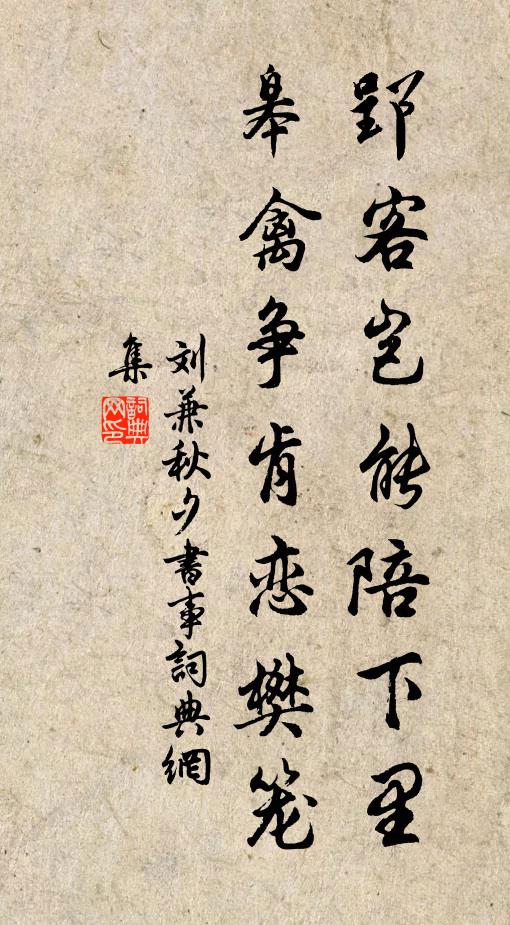 郢客岂能陪下里
皋禽争肯恋樊笼
刘兼秋夕書事詞典網
集
詞典
网印